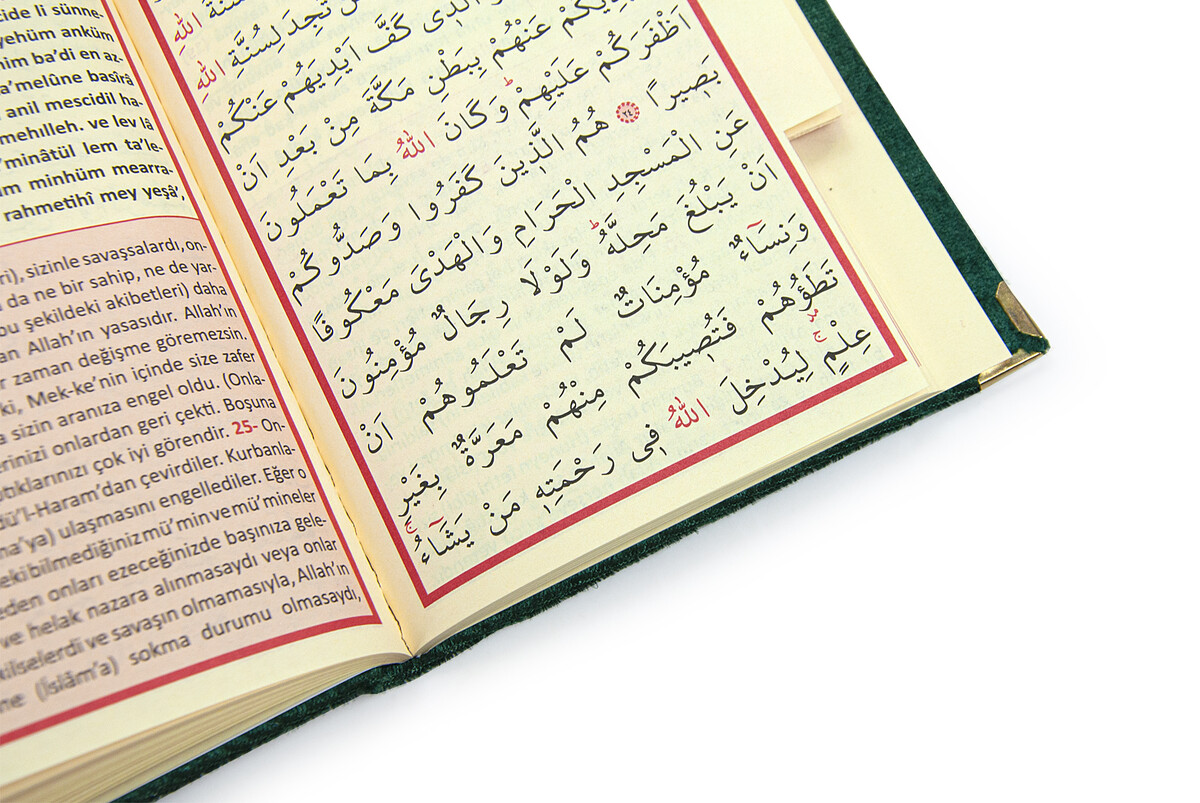 cide li sünne-
yehüm anküm
him ba'di en az-
a'melûne basîrâ
anil mescidil ha-
mehılleh. ve lev lâ
'minâtül lem ta'le-
üm minhüm mearra-
rahmetihî mey yeşâ',
ri), sizinle savaşsalardı, on-
da ne bir sahip, ne de yar-
bu şekildeki akibetleri) daha
an Allah'ın yasasıdır. Allah'ın
r zaman değişme göremezsin.
ki, Mek-ke'nin içinde size zafer
a sizin aranıza engel oldu. (Onla-
erinizi onlardan geri çekti. Boşuna
ptıklarınızı çok iyi görendir. 25- On-
dü'l-Haram'dan çevirdiler. Kurbanla-
na'ya) ulaşmasını engellediler. Eğer o
eki bilmediğiniz mü'min ve mü'mineler
eden onları ezeceğinizde başınıza gele-
ve helak nazara alınmasaydı veya onlar
kilselerdi ve savaşın olmamasıyla, Allah'ın
ne (İslâm'a) sokma durumu olmasaydı,
سُنَّةَ اللّٰهِ
تَجِدَ لِسُنَّةِ اللّٰهِ
الَّذٖى كَفَّ اَيْدِيَهُمْ عَنْكُمْ
عَنْهُمْ بِبَطْنِ مَكَّةَ مِنْ بَعْدِ اَنْ
اَظْفَرَكُمْ عَلَيْهِمْؕ وَكَانَ اللّٰهُ بِمَا تَعْمَلُونَ
بَصٖيرًا ﴿٢٤﴾ هُمُ الَّذٖينَ كَفَرُوا وَصَدُّوكُمْ
عَنِ الْمَسْجِدِ الْحَرَامِ وَالْهَدْىَ مَعْكُوفًا
اَنْ يَبْلُغَ مَحِلَّهُؕ وَلَوْلَا رِجَالٌ مُؤْمِنُونَ
وَنِسَآءٌ مُؤْمِنَاتٌ لَمْ تَعْلَمُوهُمْ اَنْ
تَطَؤُهُمْ فَتُصٖيبَكُمْ مِنْهُمْ مَعَرَّةٌ بِغَيْرِ
عِلْمٍۚ لِيُدْخِلَ اللّٰهُ فٖى رَحْمَتِهٖ مَنْ يَشَآءُۚ